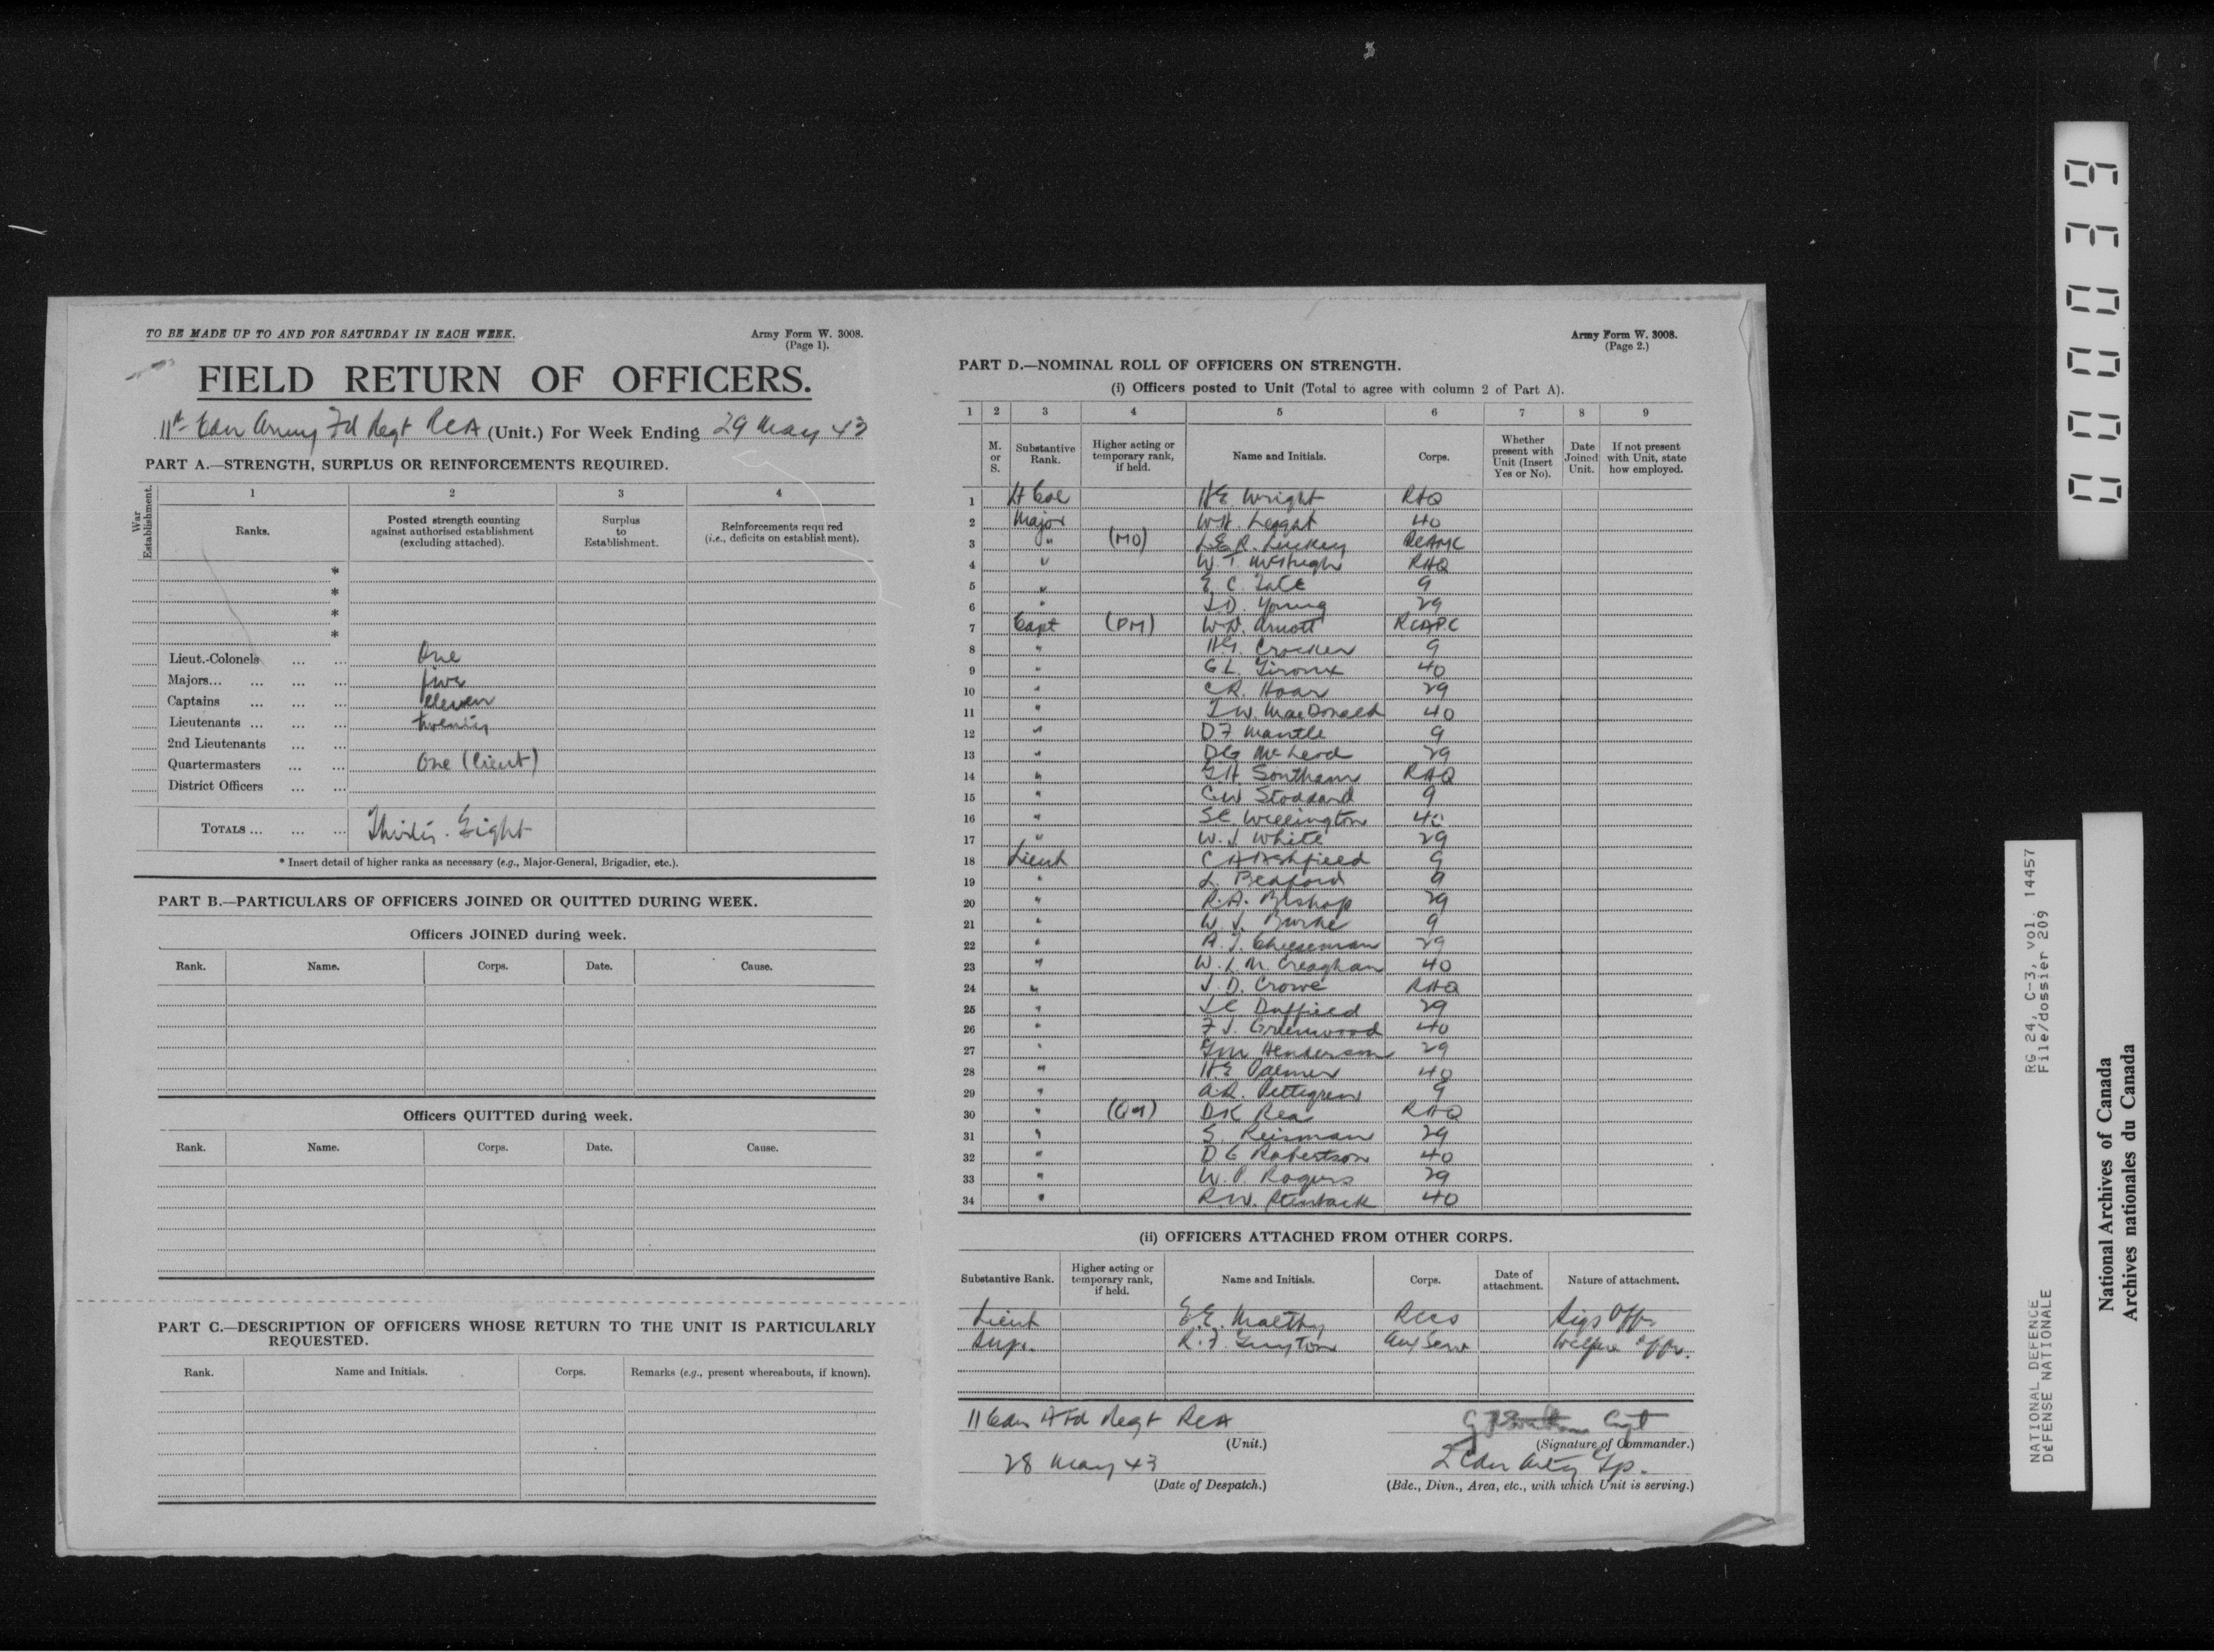 TO BE MADE UP TO AND FOR SATURDAY IN EACH WEEK.
Army Form W. 3008.
(Page 1).
FIELD RETURN OF OFFICERS.
11th Cdn Army Fd Regt RCA (Unit.) For Week Ending 29 May 43
PART A.—STRENGTH, SURPLUS OR REINFORCEMENTS REQUIRED.
War Establishment.
1 2 3 4
Ranks. Posted strength counting against authorised establishment (excluding attached). Surplus to Establishment. Reinforcements required (i.e., deficits on establishment).
*
*
*
*
Lieut.-Colonels ... ... One
Majors... ... ... ... five
Captains ... ... ... eleven
Lieutenants ... ... ... twenty
2nd Lieutenants ... ...
Quartermasters ... ... One (Lieut)
District Officers ... ...
TOTALS ... ... ... Thirty-Eight
* Insert detail of higher ranks as necessary (e.g., Major-General, Brigadier, etc.).
PART B.—PARTICULARS OF OFFICERS JOINED OR QUITTED DURING WEEK.
Officers JOINED during week.
Rank. Name. Corps. Date. Cause.
Officers QUITTED during week.
Rank. Name. Corps. Date. Cause.
PART C.—DESCRIPTION OF OFFICERS WHOSE RETURN TO THE UNIT IS PARTICULARLY
REQUESTED.
Rank. Name and Initials. Corps. Remarks (e.g., present whereabouts, if known).
Army Form W. 3008.
(Page 2.)
PART D.—NOMINAL ROLL OF OFFICERS ON STRENGTH.
(i) Officers posted to Unit (Total to agree with column 2 of Part A).
1 2 3 4 5 6 7 8 9
M. or S. Substantive Rank. Higher acting or temporary rank, if held. Name and Initials. Corps. Whether present with Unit (Insert Yes or No). Date Joined Unit. If not present with Unit, state how employed.
1 Lt Col HE Wright RHQ
2 Major WH. Leggat 40
3 " (MO) L.E.R. Luckey RCAMC
4 " W. T. McHugh RHQ
5 " E. C. Tate 9
6 " J.D. Young 29
7 Capt (PM) W.N. Arnott RCAPC
8 " HG. Crocker 9
9 " G L. Giroux 40
10 " C.R. Hoar 29
11 " J.W. MacDonald 40
12 " D F Mantle 9
13 " DG McLeod 29
14 " G.H Southam RHQ
15 " C.W Stoddard 9
16 " S.C. Willington 40
17 " W. J. White 29
18 Lieut C A Ashfield 9
19 " L. Bedford 9
20 " R.A. Bishop 29
21 " W. J. Burke 9
22 " A. J. Cheeseman 29
23 " W. L. M. Creaghan 40
24 " J. D. Crowe RHQ
25 " J.C Duffield 29
26 " F J. Greenwood 40
27 " G.M Henderson 29
28 " H.E Palmer 40
29 " A.R. Pettigrew 9
30 " (QM) D.K Rea RHQ
31 " S. Reisman 29
32 " D G Robertson 40
33 " W. P. Rogers 29
34 " R.W. 40
(ii) OFFICERS ATTACHED FROM OTHER CORPS.
Substantive Rank. Higher acting or temporary rank, if held. Name and Initials. Corps. Date of attachment. Nature of attachment.
Lieut E.E. Maltby RCCS Sigs Offr
Supr. R. F. Aux Serv Welfare Offr.
11 Cdn A Fd Regt RCA
(Unit.)
Capt
(Signature of Commander.)
28 May 43
(Date of Despatch.)
2 Cdn Arty Gp.
(Bde., Divn., Area, etc., with which Unit is serving.)
000039
RG 24, C-3, vol. 14457
File/dossier 209
NATIONAL DEFENCE
DÉFENSE NATIONALE
National Archives of Canada
Archives nationales du Canada